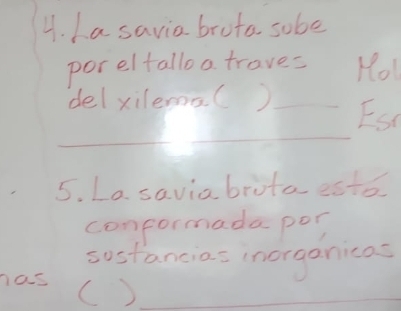 4. La savia bruta sube
por el tallo a traves
del xilema ( ) ____
5. La savia bruta está
conformada por
sustancias inorgánicas
( ) ____